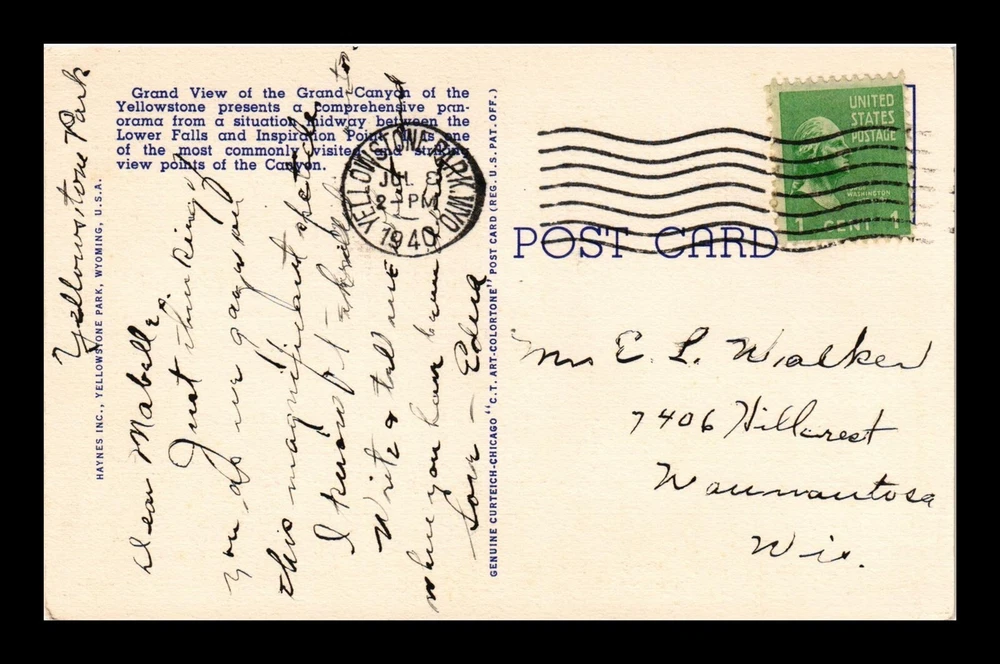 Grand View of the Grand Canyon of the
Yellowstone presents a comprehensive pan-
orama from a situation midway between the
Lower Falls and Inspiration Point. It is one
of the most commonly visited and striking
view points of the Canyon.
HAYNES INC., YELLOWSTONE PARK, WYOMING, U.S.A.
Yellowstone Park
Dear Mabelle,
Just thinking of
you as we gaze on
this magnificent
I
Write & tell me
where you have been
Love - Edna
YELLOWSTONE PARK, WYO.
JUL 8
2 - PM
1940
GENUINE CURTEICH-CHICAGO "C.T. ART-COLORTONE" POST CARD (REG. U.S. PAT. OFF.)
UNITED
STATES
POSTAGE
WASHINGTON
1 CENT 1
POST CARD
Mrs E. L. Walker
7406 Hillcrest
Wauwautosa
Wis.